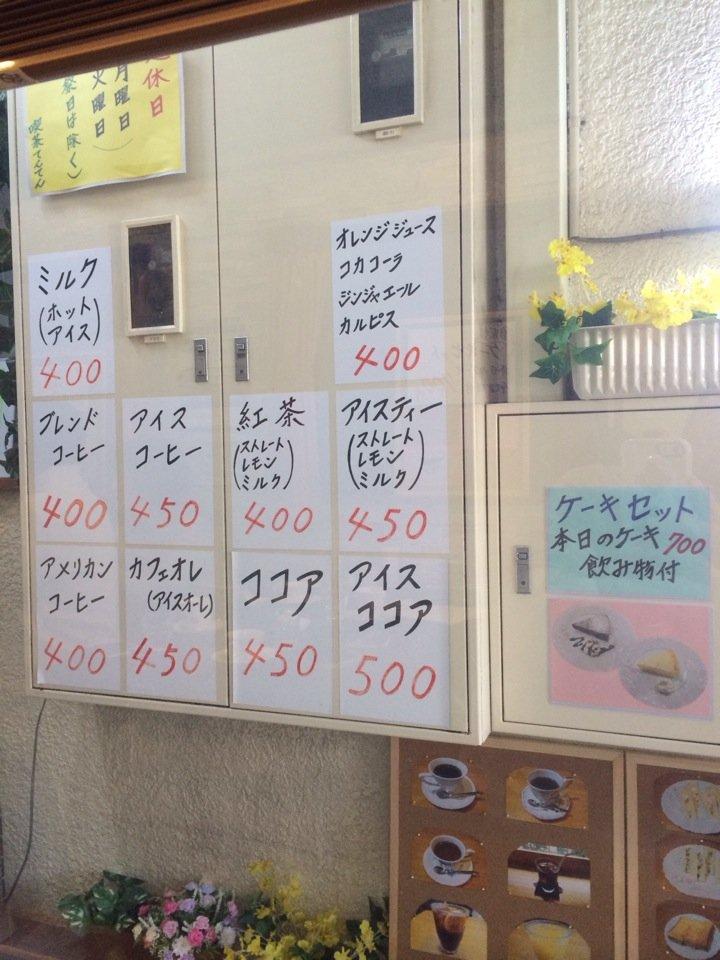 定休日
月曜日
火曜日
祭日は除く)
喫茶てんてん
ミルク
(ホット
アイス)
400
オレンジジュース
コカコーラ
ジンジャエール
カルピス
400
ブレンド
コーヒー
400
アイス
コーヒー
450
紅茶
(ストレート
レモン
ミルク)
400
アイスティー
(ストレート
レモン
ミルク)
450
アメリカン
コーヒー
400
カフェオレ
(アイスオーレ)
450
ココア
450
アイス
ココア
500
ケーキセット
本日のケーキ 700
飲み物付